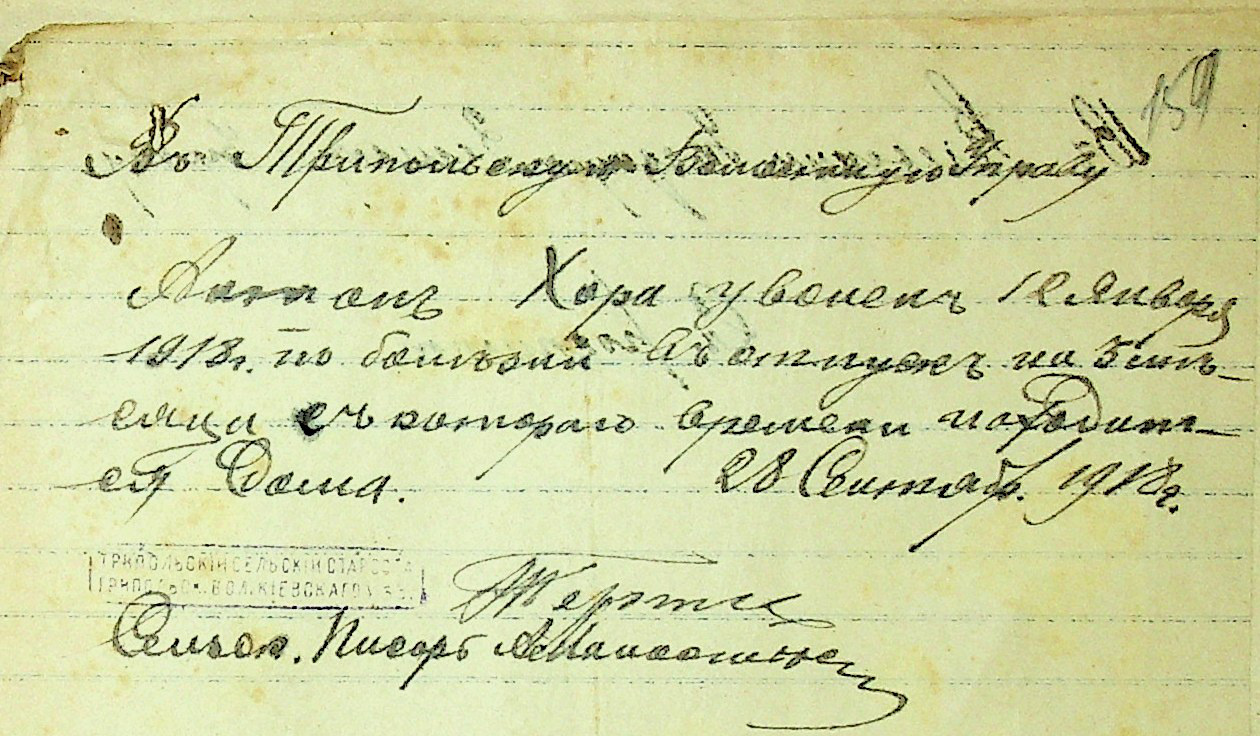 159
Въ Трипольскую Волостную Управу
Антонъ Хора уволенъ 12 Января
1918 г. по болезни въ отпускъ на 3 мѣ-
сяца съ котораго времени находит-
ся дома. 28 Сентябр. 1918 г.
ТРИПОЛЬСКІЙ СЕЛЬСКІЙ СТАРОСТА
ТРИПОЛЬСК. ВОЛ. КІЕВСКАГО У.
Сельск. Писарь